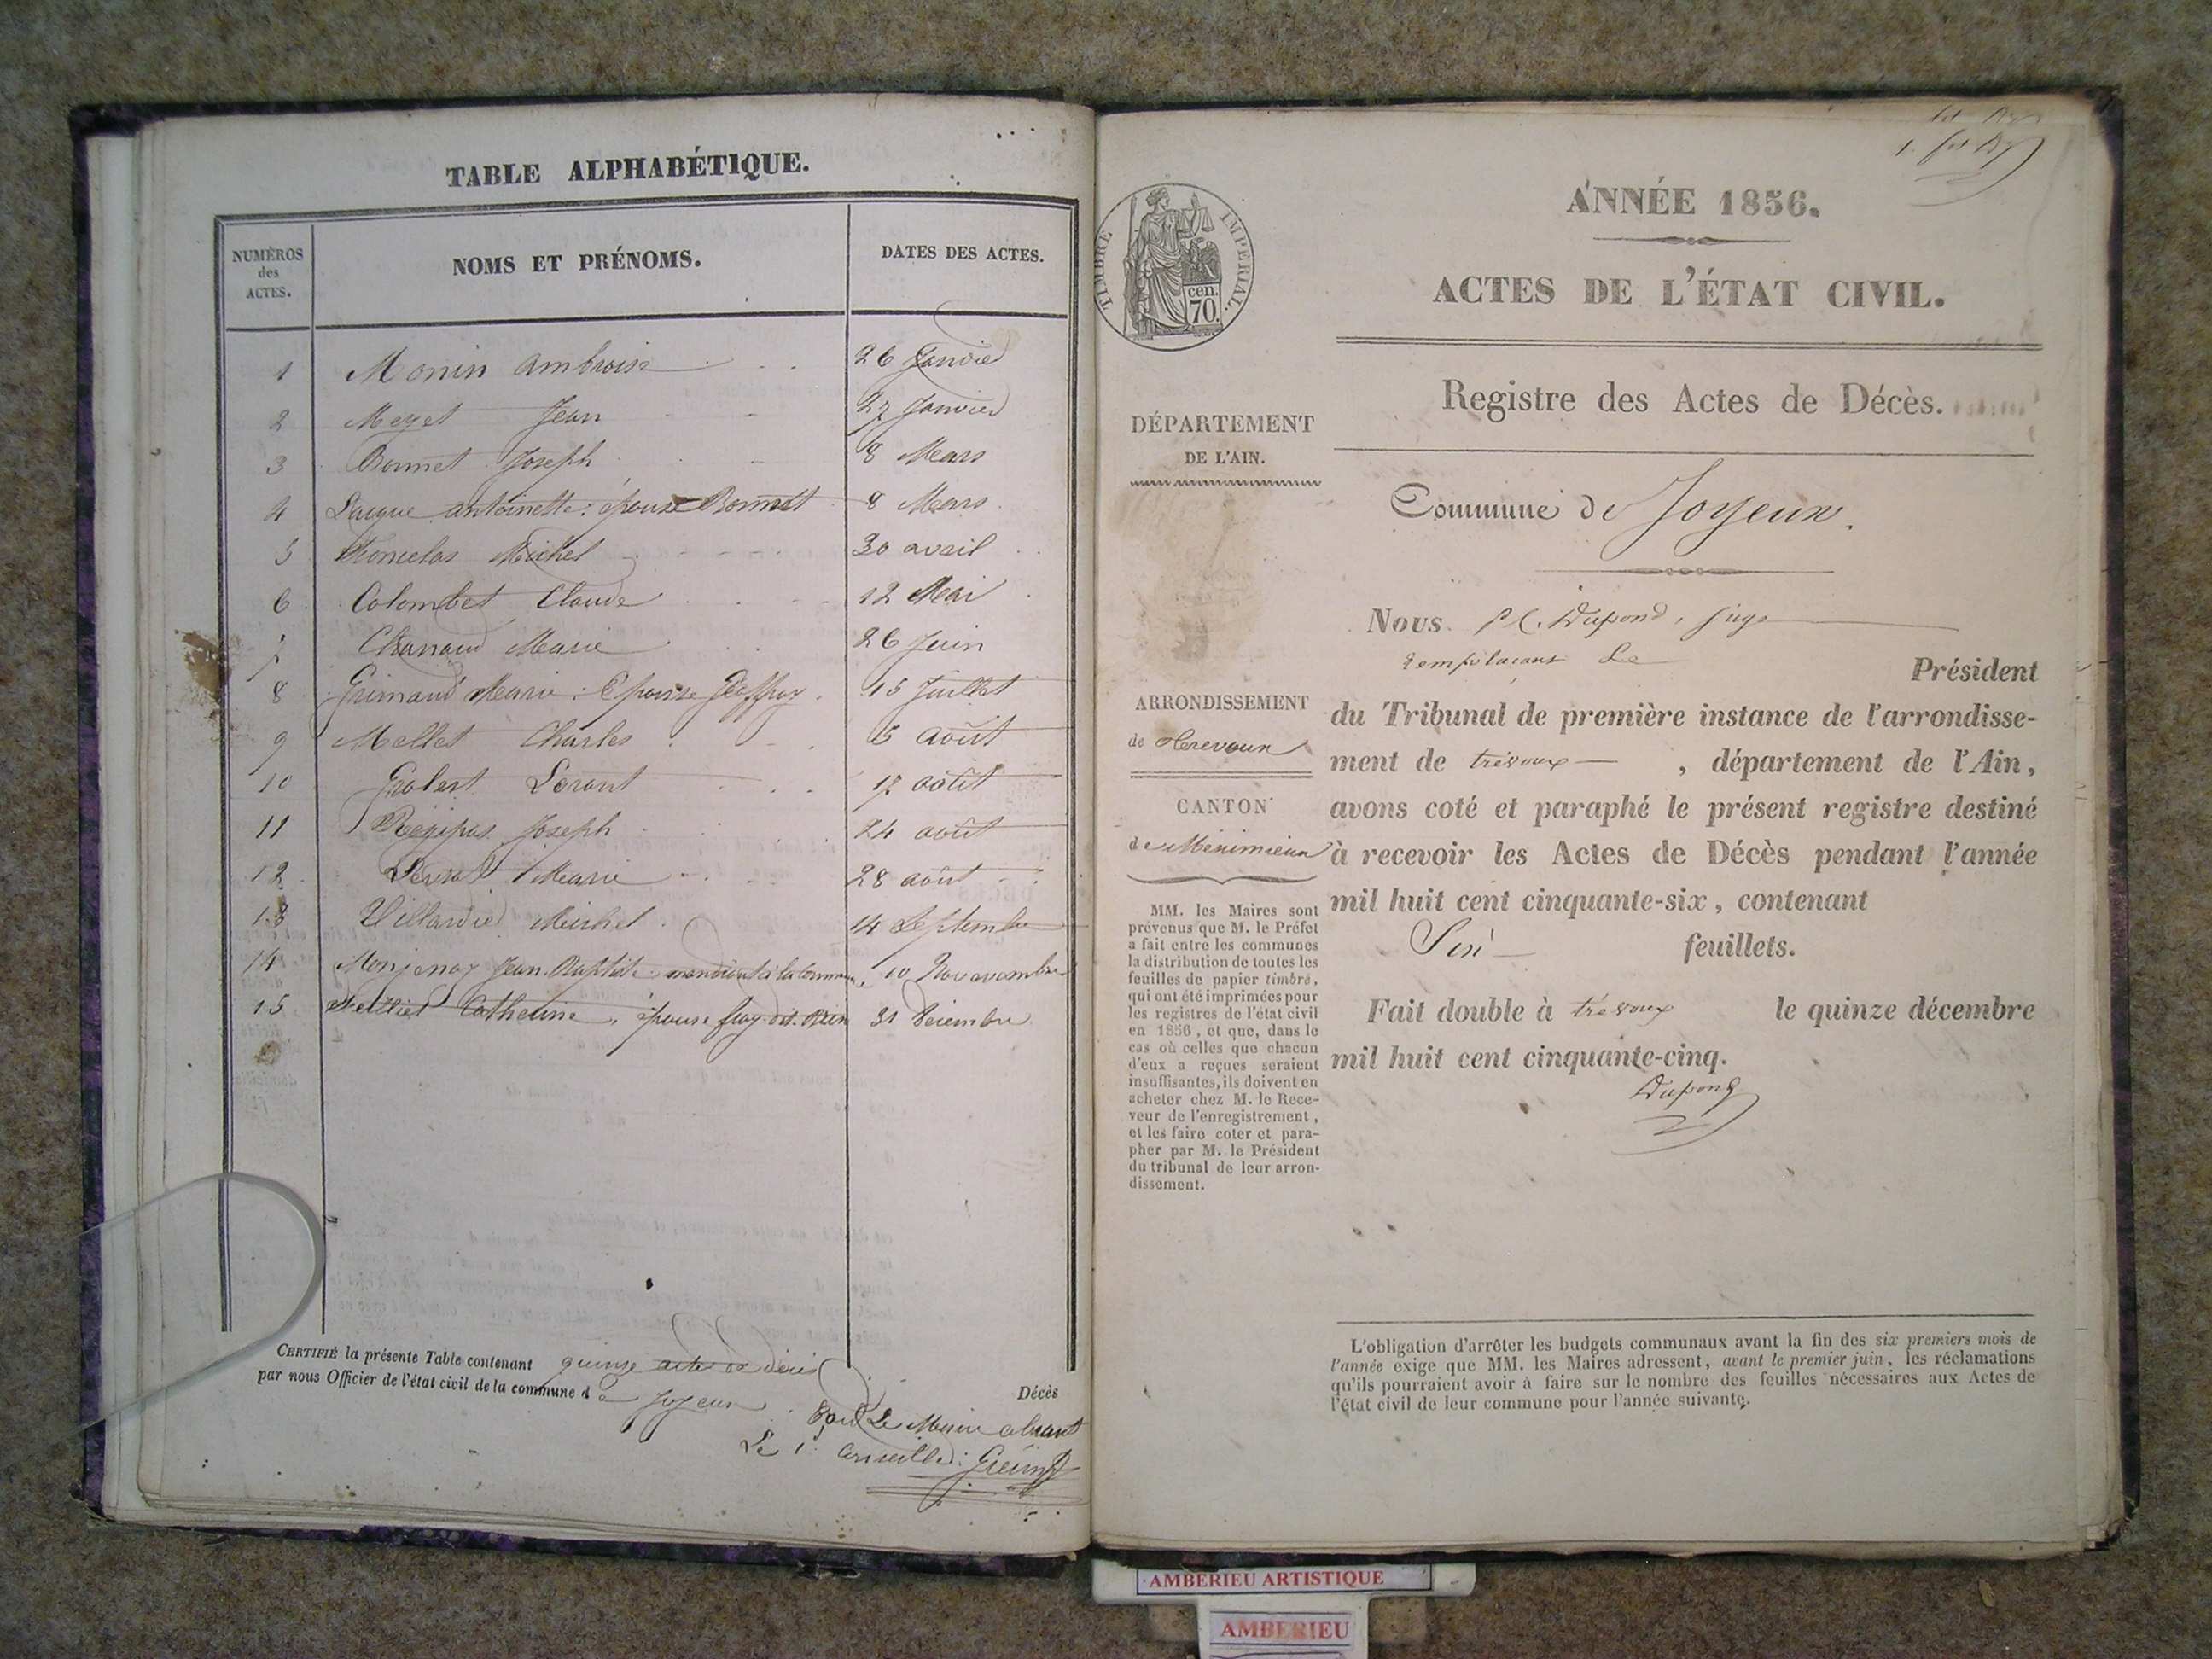 TABLE ALPHABÉTIQUE.
NUMÉROS
des
ACTES.
NOMS ET PRÉNOMS.
DATES DES ACTES.
1 Monin Ambroise 26 Janvier
2 Meyet Jean 27 Janvier
3 Bonnet Joseph 8 Mars
4 antoinette : épouse Bonnet 8 Mars
5 Michel 30 avril
6 Colombet Claude 12 Mai
7 Chanaud Marie 26 Juin
8 Grimaud Marie : Epouse Geoffray 15 Juillet
9 Mellet Charles 5 août
10 Grobert Lorant 17 août
11 Régipas Joseph 24 août
12 Marie 28 août
13 Villardier Michel 14 Septembre
14 Monjenay Jean-Baptiste mendiant à la Commune 10 Novembre
15 Catherine, épouse 31 Décembre
CERTIFIÉ la présente Table contenant quinze actes de décès
par nous Officier de l'état civil de la commune d e Joyeux Décès
Pour Le Maire absent
Le 1er Conseiller :
ANNÉE 1856.
ACTES DE L'ÉTAT CIVIL.
Registre des Actes de Décès.
Commune de Joyeux.
TIMBRE IMPÉRIAL.
cen.
70.
DÉPARTEMENT
DE L'AIN.
ARRONDISSEMENT
de Trevoux
CANTON
de Méximieux
MM. les Maires sont
prévenus que M. le Préfet
a fait entre les communes
la distribution de toutes les
feuilles de papier timbré,
qui ont été imprimées pour
les registres de l'état civil
en 1856, et que, dans le
cas où celles que chacun
d'eux a reçues seraient
insuffisantes, ils doivent en
acheter chez M. le Rece-
veur de l'enregistrement,
et les faire coter et para-
pher par M. le Président
du tribunal de leur arron-
dissement.
Nous Dupond, juge
remplaçant Le Président
du Tribunal de première instance de l'arrondisse-
ment de trévoux, département de l'Ain,
avons coté et paraphé le présent registre destiné
à recevoir les Actes de Décès pendant l'année
mil huit cent cinquante-six, contenant
Six feuillets.
Fait double à trévoux le quinze décembre
mil huit cent cinquante-cinq.
Dupond
L'obligation d'arrêter les budgets communaux avant la fin des six premiers mois de
l'année exige que MM. les Maires adressent, avant le premier juin, les réclamations
qu'ils pourraient avoir à faire sur le nombre des feuilles nécessaires aux Actes de
l'état civil de leur commune pour l'année suivante.
AMBERIEU ARTISTIQUE
AMBERIEU